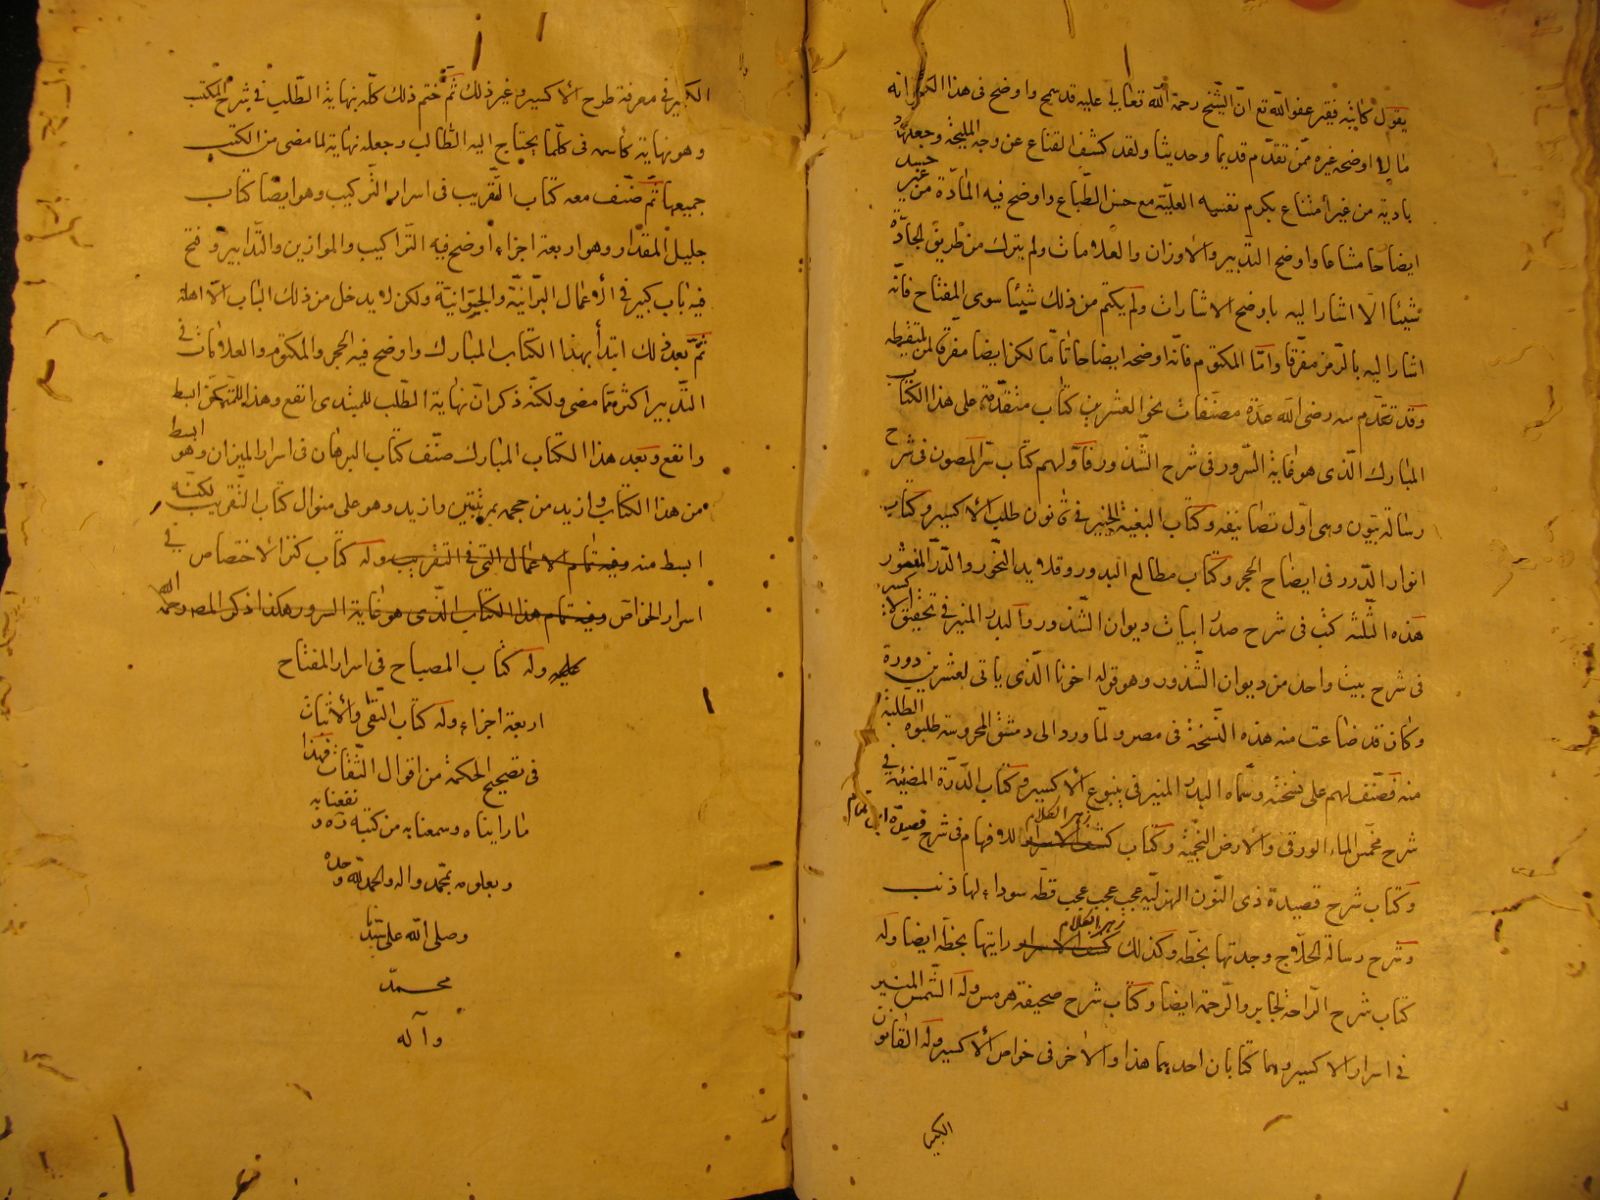 يقول كاتبه فقير عفو الله تع انّ الشّيخ رحمة اللّه تعالى عليه قد سمح واوضح فى هذا الكتاب انّه
ما لا اوضحه غيره ممّن تقدّم قديما وحديثا ولقد كشف القناع عن وجه المليحة وجعلها
بادية من غير امتناع بكرم نفسه العليّة مع حسن الطّباع واوضح فيه المادّة من غير
ايضاحا مشاعا واوضح التدبير والاوزان والعلامات ولم يترك من طريق الجادّة
شيئا الّا اشار اليه باوضح الاشارات ولم يكتم من ذلك شيئا سوى المفتاح فانّه
اشار اليه بالرّمز مفرّقا وامّا المكتوم فانّه اوضحه ايضاحا تامّا لكن ايضا مفرقا
وقد تقدّم منه رضى اللّه عدّة مصنّفات نحو العشرين كتاب متقدّمة على هذا الكتاب
المبارك الّذى هو غاية السّرور فى شرح الشّذور فاوّلهم كتاب سرّ المصون فى شرح
رسالة بيون وهى اوّل تصانيفه وكتاب البغية الخبير فى قانون طلب الأكسير وكتاب
انوار الدّرر فى ايضاح الحجر وكتاب مطالع البدور وقلايد النّحور والدّرّ المنثور
هذه الثّلثة كتب فى شرح صدر ابيات ديوان الشّذور والبدر المنير فى تحقيق الاكسير
فى شرح بيت واحد من ديوان الشّذور وهو قوله اخونا الّذى ياتى لعشرين دورة
وكان قد ضاعت منه هذه النّسخة فى مصر ولمّا ورد الى دمشق المحروسة طلبوه الطلبة
منه فصنّف لهم على نسخته وسمّاه البدر المنير فى ينبوع الأكسير وكتاب الدّرّة المضيئة فى
شرح مخمّس الماء الورقى والأرض النّجميّة وكتاب كشف الاسرار زهر الكلام للافهام فى شرح قصيدة ابى تمام
وكتاب شرح قصيدة ذى النّون الهزليّه عجب عجب عجب قطّه سوداء لها ذنب
وشرح رسالة الحلّاج وجدتها بخطّه وكذلك كشف الاسرار زهر الكلام رايتها بخطّه ايضا وله
كتاب شرح الرّاحة لجابر والرّحمة ايضا وكتاب شرح صحيفة هرمس وله الشّمس المنير
فى اسرار الاكسير وهما كتابان احديهما هذا والأخر فى خواص الأكسير وله القانون
الكبير
الكبير فى معرفة طرح الأكسير وغير ذلك ثمّ ختم ذلك كلّه بنهاية الطّلب فى شرح المكتسب
وهو نهاية كاسمه فى كلّما يحتاج اليه الطّالب وجعله نهاية لما مضى من الكتب
جميعها ثمّ صنّف معه كتاب التّقريب فى اسرار التّركيب وهو ايضا كتاب
جليل المقدار وهو اربعة اجزاء اوضح فيه التّراكيب والموازين والتّدابير وفتح
فيه باب كبير فى الأعمال البرّانيّة والجوّانيّة ولكن لا يدخل من ذلك الباب الّا اهله
ثمّ بعد ذلك ابتدأ بهذا الكتاب المبارك واوضح فيه الحجر والمكتوم والعلامات فى
التّدبير اكثر ممّا مضى ولكنّه ذكر انّ نهاية الطّلب للمبتدى انفع وهذا للمتمكّن ابسط
وانفع وبعد هذا الكتاب المبارك صنّف كتاب البرهان فى اسرار الميزان وهو ابسط
من هذا الكتاب وازيد من حجمه بمرّتين وازيد وهو على منوال كتاب التّقريب لكنّه
ابسط منه وفيه تمام الاعمال التى فى التقريب وله كتاب كنز الأختصاص فى
اسرار الخواصّ وفيه تمام هذا الكتاب الّذى هو غاية السرور هكذا ذكر المص رحمة اللّه
عليه وله كتاب المصباح فى اسرار المفتاح
اربعة اجزاء وله كتاب النّفى والأثبات
فى تصحيح الحكمة من اقوال الثّقات فهذا
ما رايناه وسمعنا به من كتبه نفعنا به
وبعلومه بمحمّد واله والحمد للّه وحده
وصلى اللّه على سيّدنا
محمّد
وآله